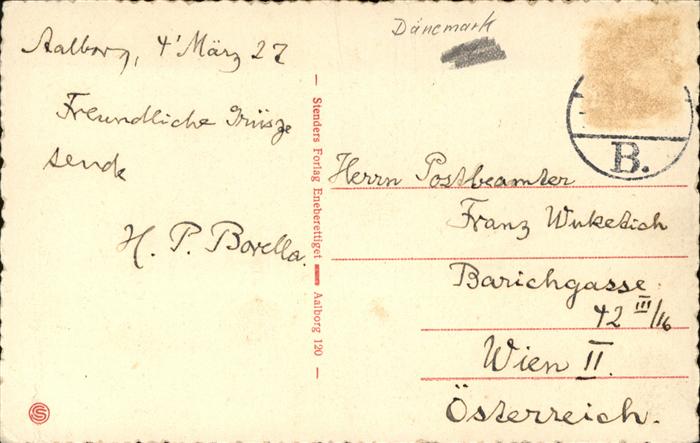 Dänemark
Aalborg, 4' März 27
Freundliche Grüsze
sende
H. P. Borella.
Stenders Forlag Eneberettiget — Aalborg 120
B.
Herrn Postbeamter
Franz Wuketich
Barichgasse
42 III/16
Wien II.
Österreich.
S